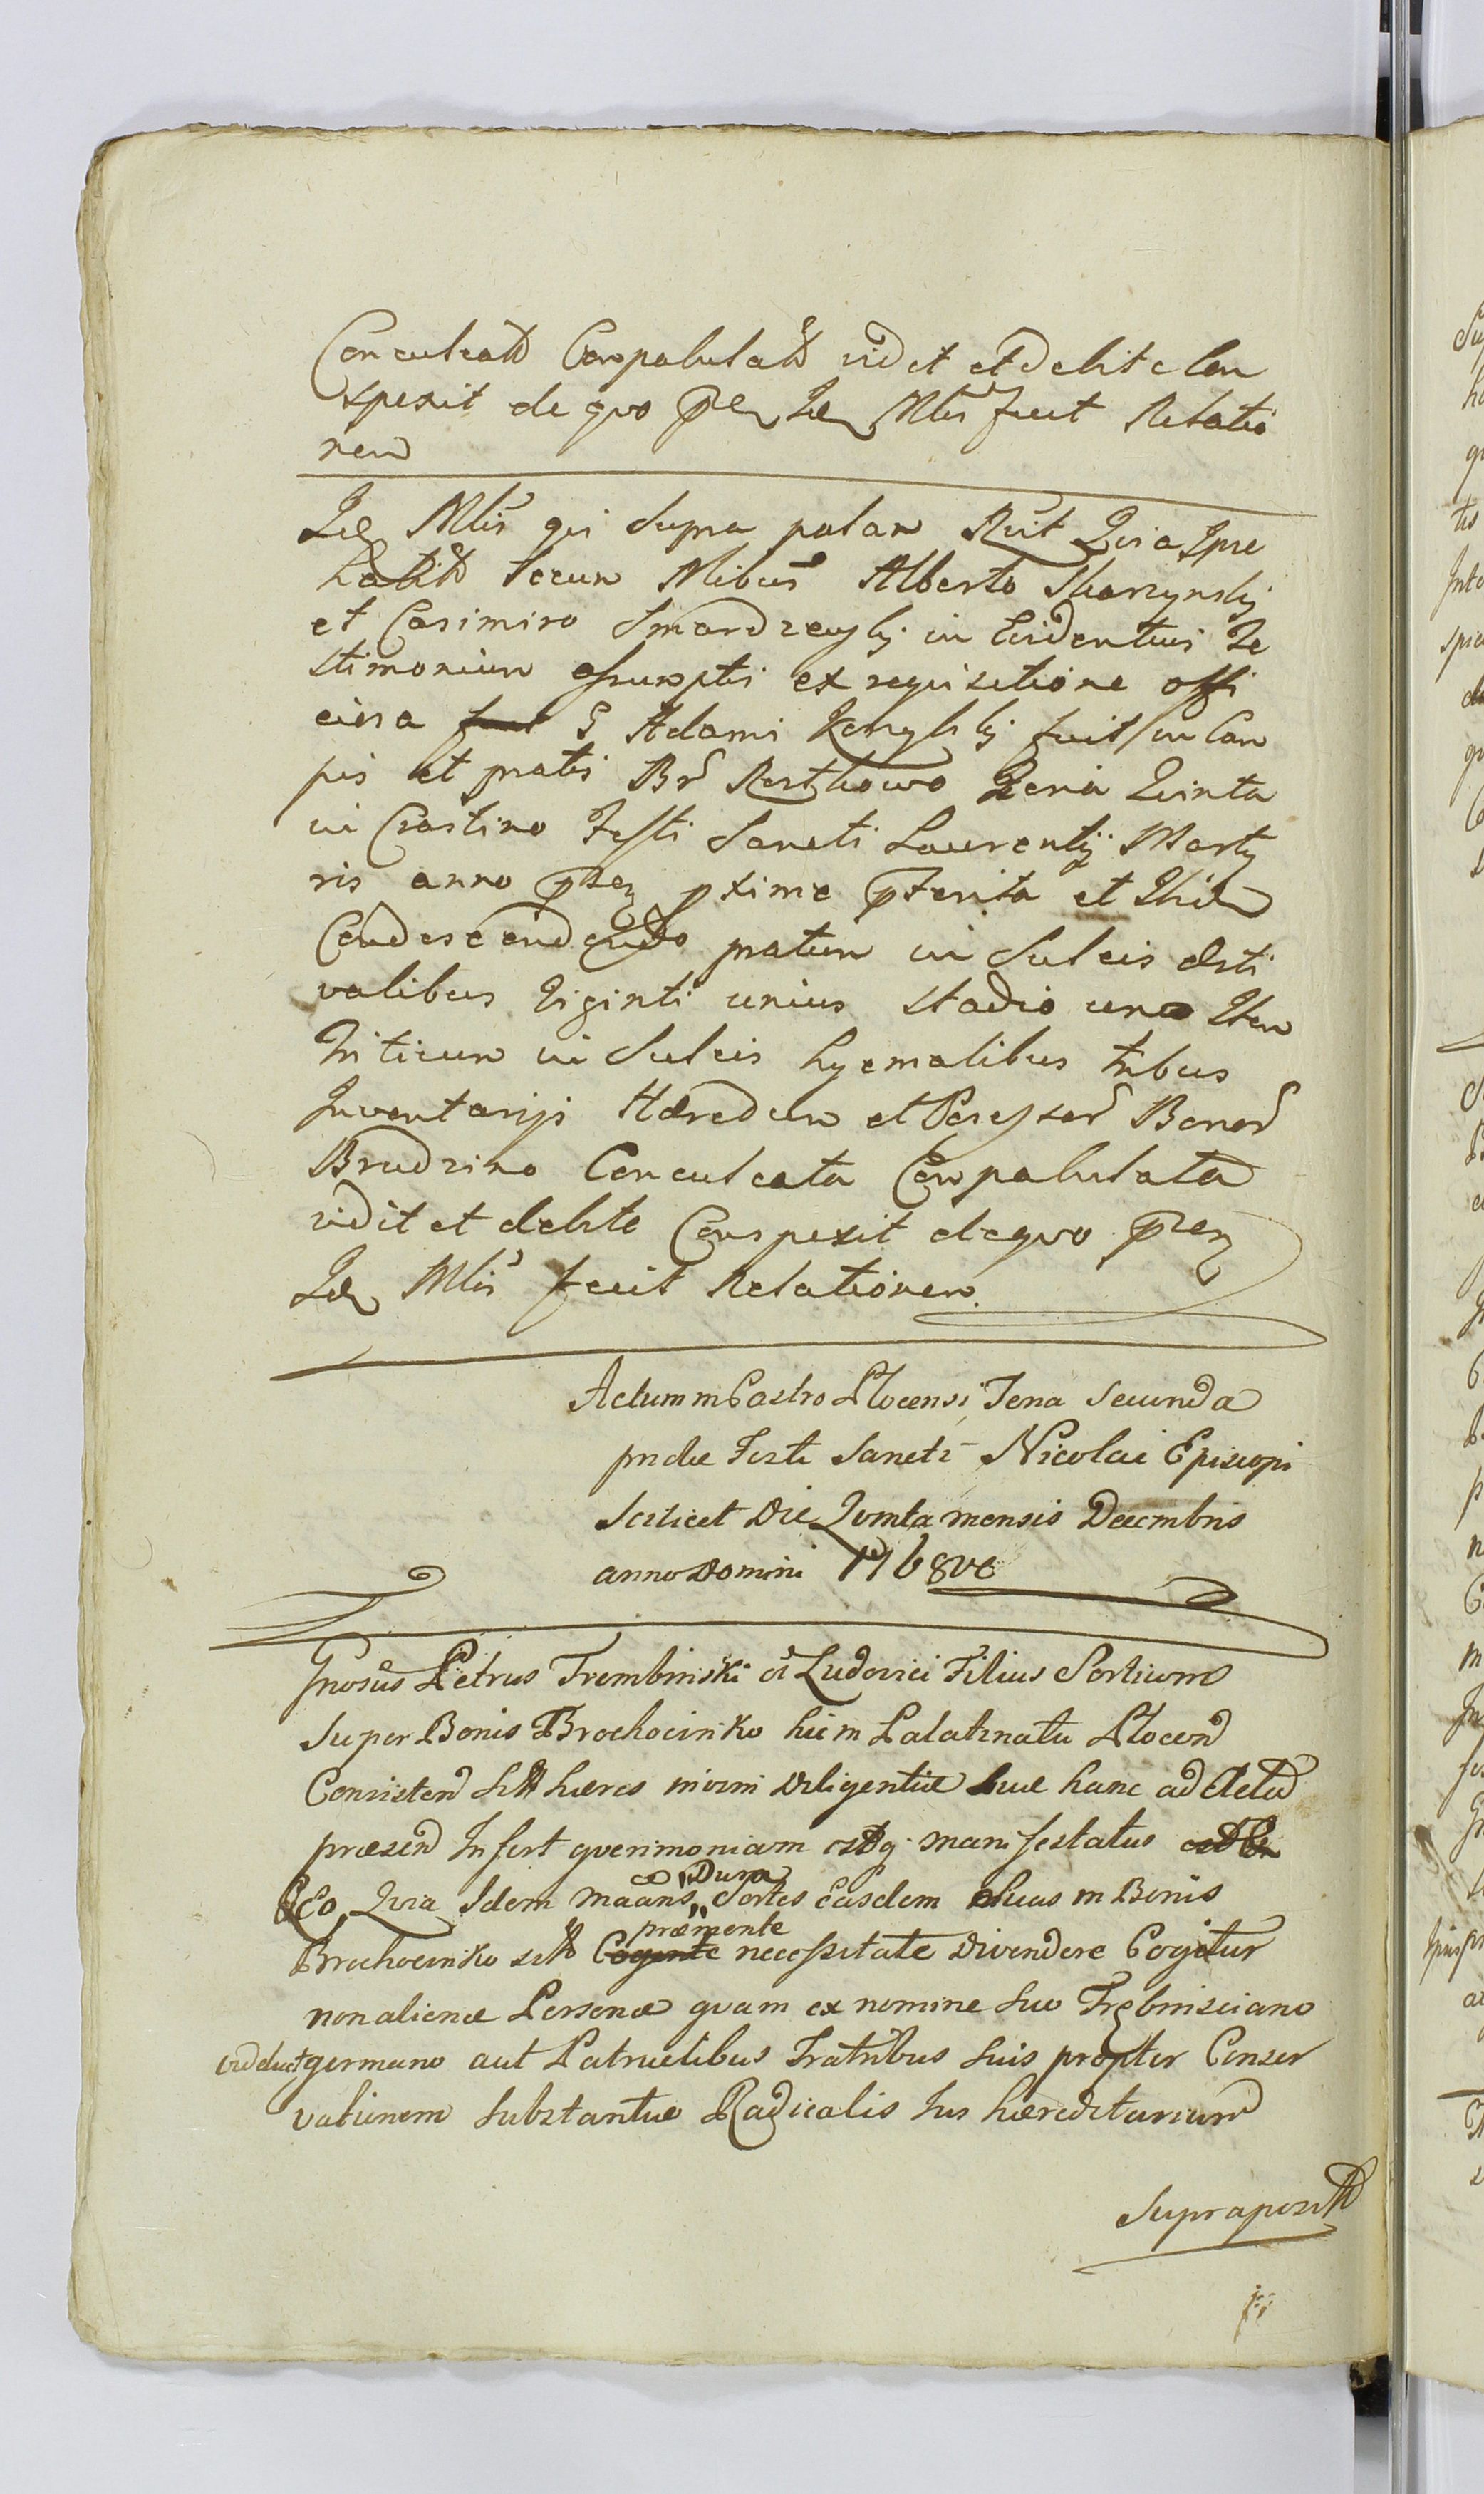 Conculcatũ Compabulatũ vidit et debite Con
spexit de quo pñs Idẽ Mlis fecit Relatio
nem
Idẽ Mlis qui Supra palam Rĩt Quia Ipse
habitis Secum Mlibus Alberto Skarzynskij
et Casimiro Smardzewskij in Evidentius Te
stimonium assumptis ex requisitione offi
ciosa fuit G Adami Kempskij fuit in Cam
pis et pratis Br Rostkowo Feria Quinta
in Crastino Festi Sancti Laurentij Marty
ris anno pñti pxime pterita et Ibidẽ
Condescendendo pratum in Sulcis æsti
valibus Viginti unius Stadio uno Item
Triticum in Sulcis hyemalibus tribus
Inventarijs Hæredum et Possessor Bonor
Brudzino Conculcata Compabulata
vidit et debite Conspexit de quo pñs
Idẽ Mlis fecit Relationem
Actum in Castro Plocensi Feria Secunda
pridie Festi Sancti Nicolai Episcopi
Scilicet Die Quinta mensis Decembris
anno Domini 1768vo
Gnosus Petrus Trembinski oi Ludovici Filius Sortium
super Bonis Brochocinko hic in Palatinatu Plocen
Consisten sitt hæres in vim Diligentiæ suæ hanc ad Acta
præsen Infert querimoniam estq manifestatus
Eo Quia Idem maans Dura Sortes Easdem suas in Bonis
Brochocinko sitt Cogente præmente necessitate Divendere Cogitur
non alienæ Personæ quam ex nomine suo Trębinsciano
germano aut Patruelibus Fratribus suis propter Conser
vationem substantiæ Radicalis Ius hæreditarium
Supraposit